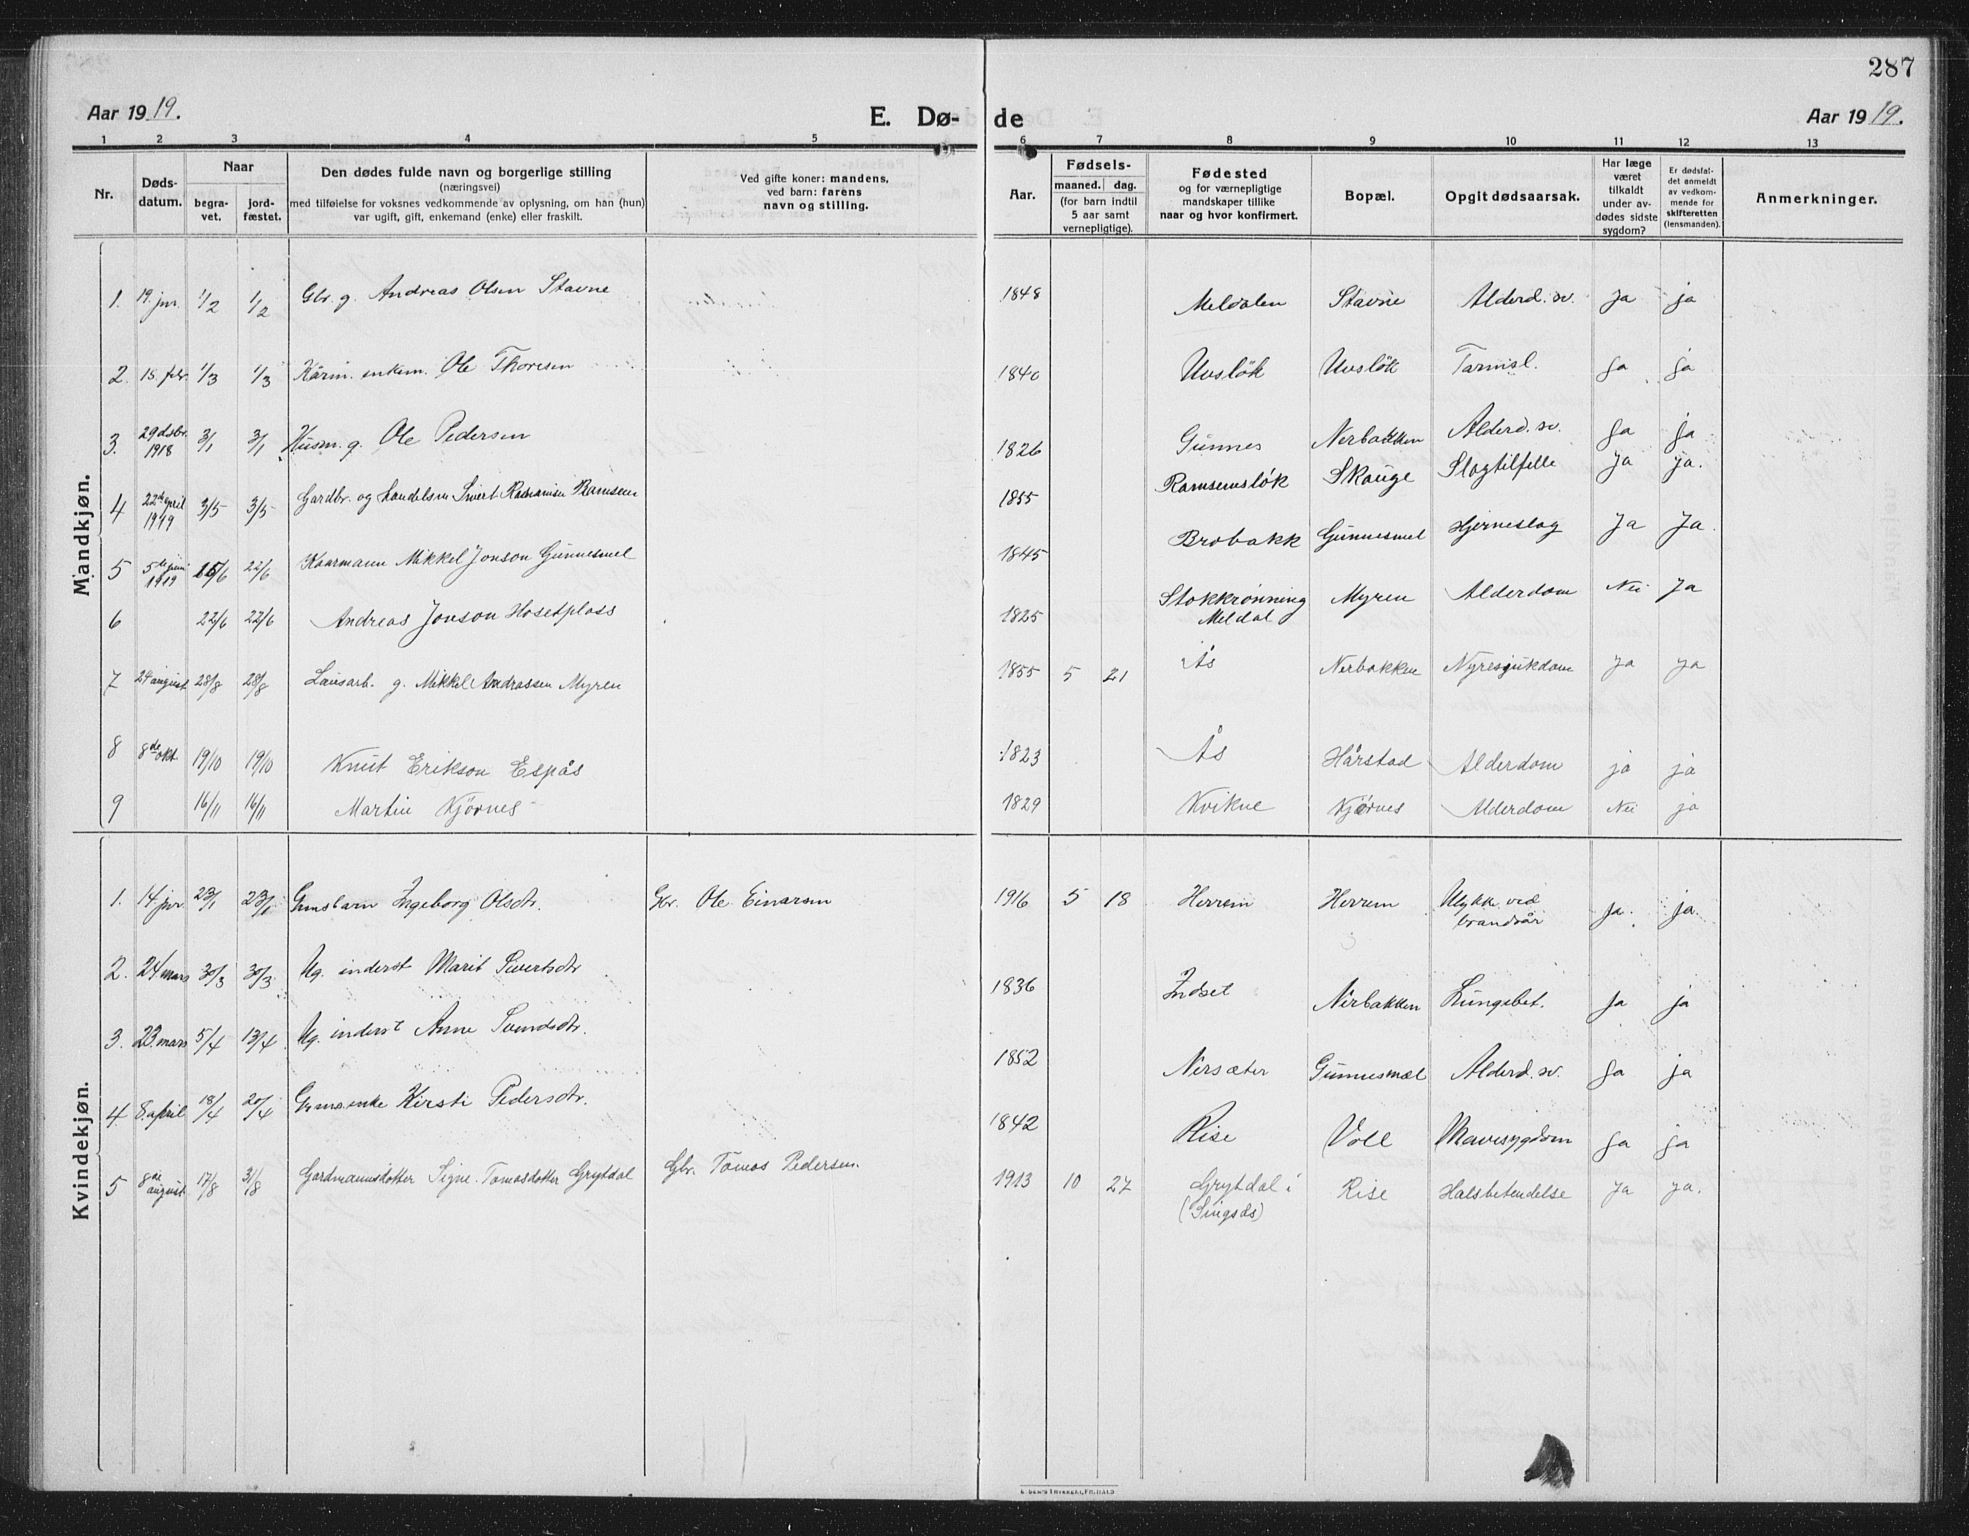 287
Aar 1919.
E. Dø-
de
Aar 1919.
1 2 3 4 5 6 7 8 9 10 11 12 13
Nr.
Døds-
datum.
Naar
begra-
vet.
jord-
fæstet.
Den dødes fulde navn og borgerlige stilling
(næringsvei)
med tilføielse for voksnes vedkommende av oplysning, om han (hun)
var ugift, gift, enkemand (enke) eller fraskilt.
Ved gifte koner: mandens,
ved barn: farens
navn og stilling.
Aar.
Fødsels-
maaned. dag.
(for barn indtil
5 aar samt
vernepligtige).
Fødested
og for værnepligtige
mandskaper tillike
naar og hvor konfirmert.
Bopæl.
Opgit dødsaarsak.
Har læge
været
tilkaldt
under av-
dødes sidste
sygdom?
Er dødsfal-
det anmeldt
av vedkom-
mende for
skifteretten
(lensmanden).
Anmerkninger.
Mandkjøn.
1. 19. jnr. 1/2 1/2 Gbr. g. Andreas Olsen Stavne 1848 Meldalen Stavne Alderd. sv. ja ja
2. 15. febr. 1/3 1/3 Kårm. enkem. Ole Thoresen 1840 Uvsløk Uvsløk Tarmsl. Ja ja
3. 29 dsbr. 1918 3/1 3/1 Husm. g. Ole Pedersen 1826 Gunnes Nerbakken Alderd. sv. Ja ja
4 22de april 1919 3/5 3/5 Gardbr. og Handelsm Sivert Rasmusen Ramsem 1855 Ramsemsløk Skauge Slagtilfelle ja ja.
5 5te juni 1919 15/6 22/6 Kaarmann Mikkel Jonson Gunnesmel 1845 Brobakk Gunnesmel Hjerneslag Ja Ja.
6 22/6 22/6 Andreas Jonson Hosetplass 1825 Stokkrønning Meldal Myren Alderdom Nei Ja
7 24 august 28/8 28/8 Lausarb. g. Mikkel Andrassen Myren 1855 5 21 Ås Nerbakken Nyresjukdom Ja ja
8 8de okt. 19/10 19/10 Knut Erikson Espås 1823 Ås Hårstad Alderdom ja ja
9 16/11 16/11 Martin Kjørnes 1829 Kvikne Kjørnes Alderdom Nei ja
Kvindekjøn.
1. 14 jnr 23/1 23/1 Gmsbarn Ingeborg Olsdtr. Gbr. Ole Einarsen 1916 5 18 Herrem Herrem Ulykke ved brandsår Ja. ja.
2. 24 mars 30/3 30/3 Ug. inderst Marit Sivertsdtr 1836 Indset Nerbakken Lungebet. Ja ja
3. 23. mars 5/4 13/4 Ug. inderst Anne Svendsdtr. 1852 Nersæter Gunnesmæl Alderd. sv. Ja ja
4 8. april 18/4 20/4 Gmsenke Kirsti Pedersdtr. 1842 Rise Voll Mavesygdom Ja ja
5 8de august 17/8 31/8 Gardmannsdotter Signe Tomasdotter Grytdal Gbr. Tomas Pedersen. 1913 10 27 Grytdal i (Singsås) Rise Halsbetendelse Ja ja.